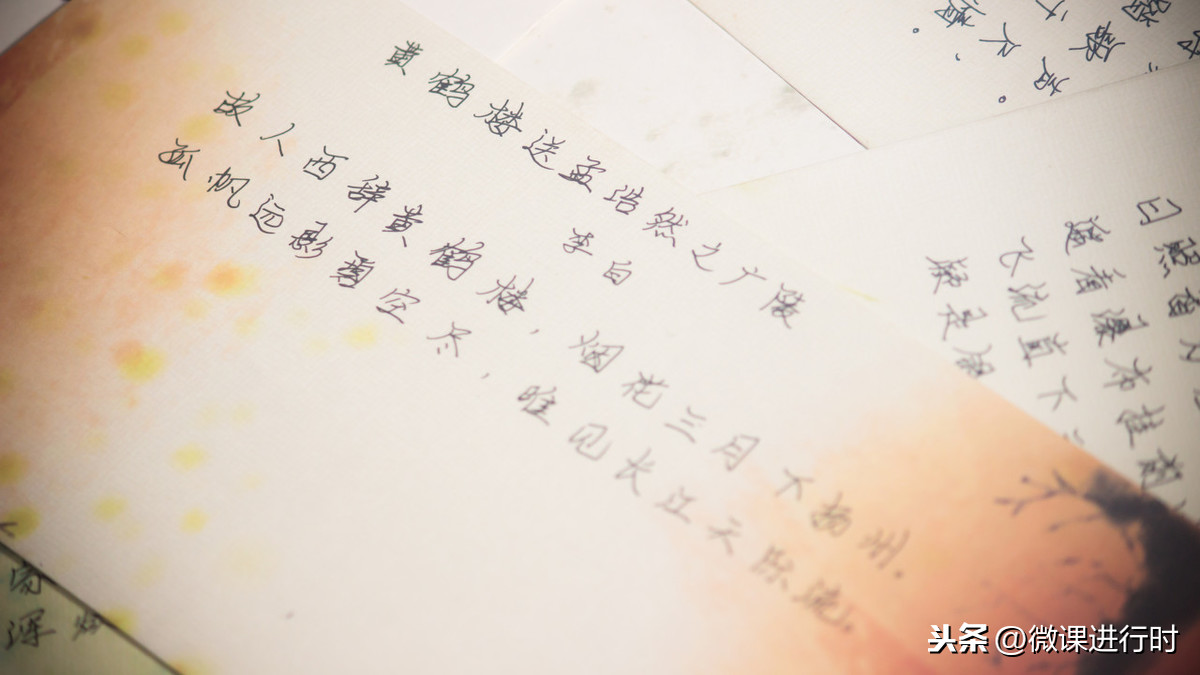 黄鹤楼送孟浩然之广陵
李白
故人西辞黄鹤楼，烟花三月下扬州．
孤帆远影碧空尽，唯见长江天际流．
日照香
遥看瀑布挂前
飞流直下
疑是银
头条 @微课进行时